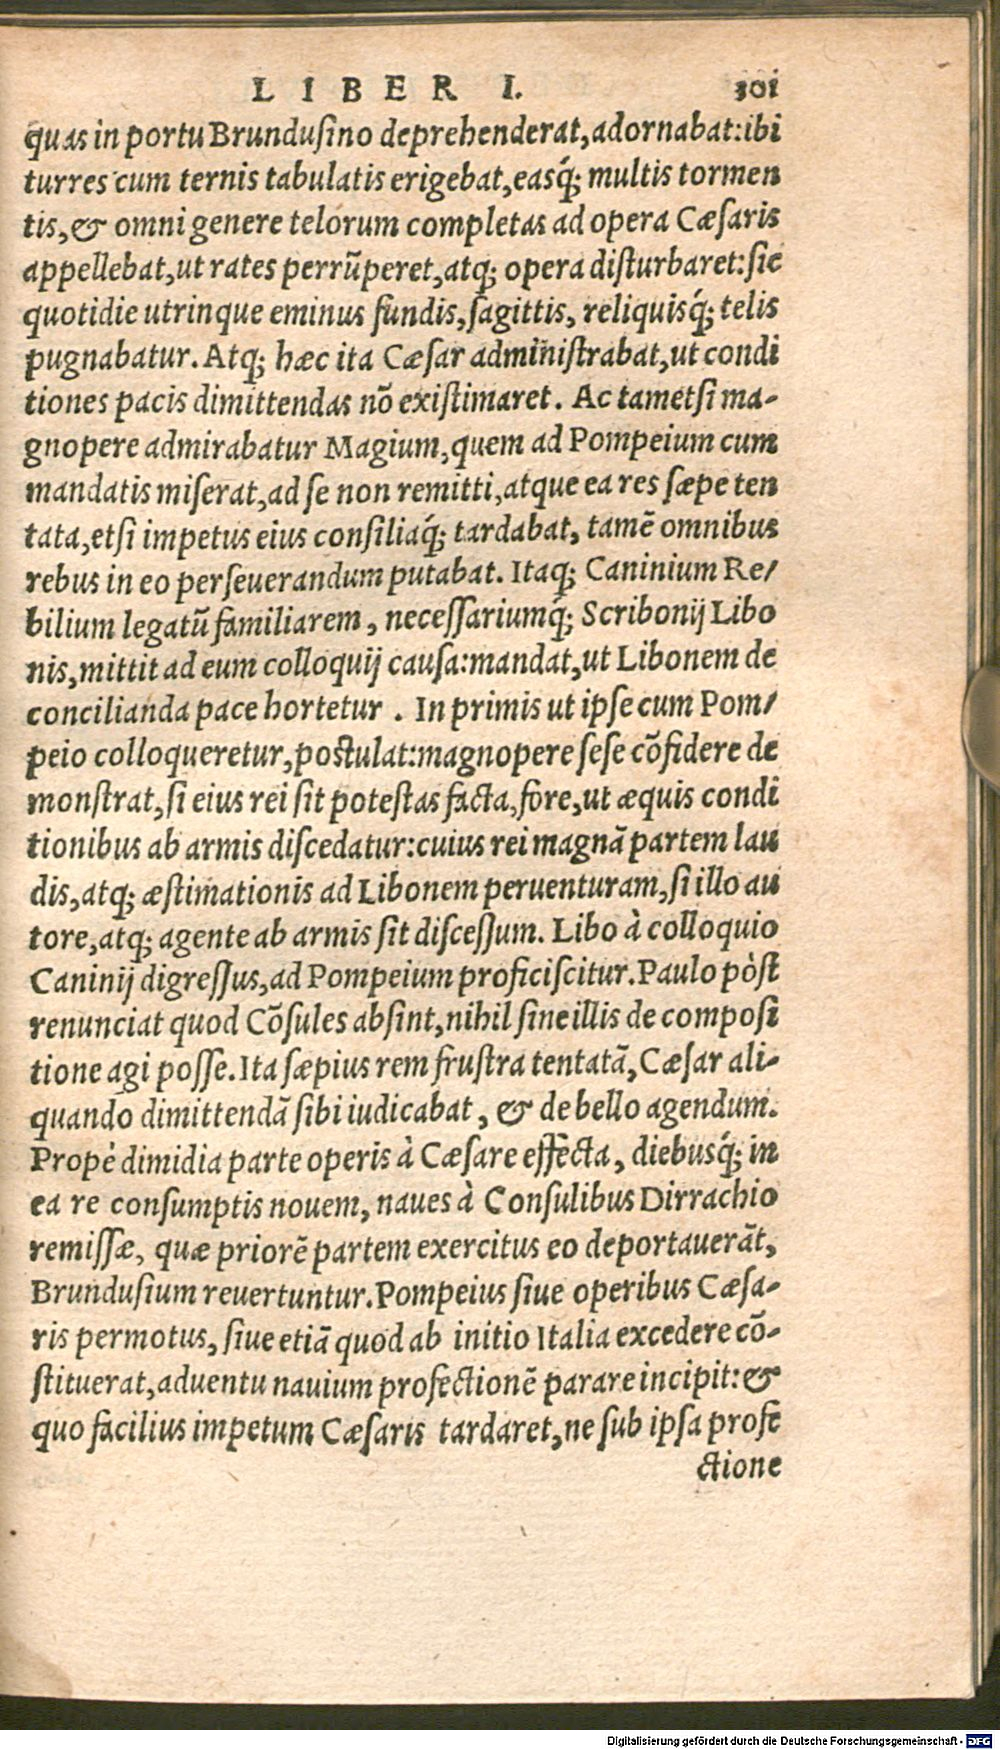 LIBER I. 301
quas in portu Brundusino deprehenderat, adornabat: ibi
turres cum ternis tabulatis erigebat, easq́; multis tormen
tis, & omni genere telorum completas ad opera Cæsaris
appellebat, ut rates perrũperet, atq; opera disturbaret: sic
quotidie utrinque eminus fundis, sagittis, reliquisq́; telis
pugnabatur. Atq; hæc ita Cæsar administrabat, ut condi
tiones pacis dimittendas nõ existimaret. Ac tametsi ma-
gnopere admirabatur Magium, quem ad Pompeium cum
mandatis miserat, ad se non remitti, atque ea res sæpe ten
tata, etsi impetus eius consiliaq́; tardabat, tamẽ omnibus
rebus in eo perseuerandum putabat. Itaq; Caninium Re/
bilium legatũ familiarem, necessariumq́; Scribonij Libo
nis, mittit ad eum colloquij causa: mandat, ut Libonem de
concilianda pace hortetur. In primis ut ipse cum Pom/
peio colloqueretur, postulat: magnopere sese cõfidere de
monstrat, si eius rei sit potestas facta, fore, ut æquis condi
tionibus ab armis discedatur: cuius rei magnã partem lau
dis, atq; æstimationis ad Libonem peruenturam, si illo au
tore, atq; agente ab armis sit discessum. Libo à colloquio
Caninij digressus, ad Pompeium proficiscitur. Paulo pòst
renunciat quod Cõsules absint, nihil sine illis de composi
tione agi posse. Ita sæpius rem frustra tentatã, Cæsar ali-
quando dimittendã sibi iudicabat, & de bello agendum.
Propè dimidia parte operis à Cæsare effecta, diebusq́; in
ea re consumptis nouem, naues à Consulibus Dirrachio
remissæ, quæ priorẽ partem exercitus eo deportauerãt,
Brundusium reuertuntur. Pompeius siue operibus Cæsa-
ris permotus, siue etiã quod ab initio Italia excedere cõ-
stituerat, aduentu nauium profectionẽ parare incipit: &
quo facilius impetum Cæsaris tardaret, ne sub ipsa profe
ctione
Digitalisierung gefördert durch die Deutsche Forschungsgemeinschaft - DFG